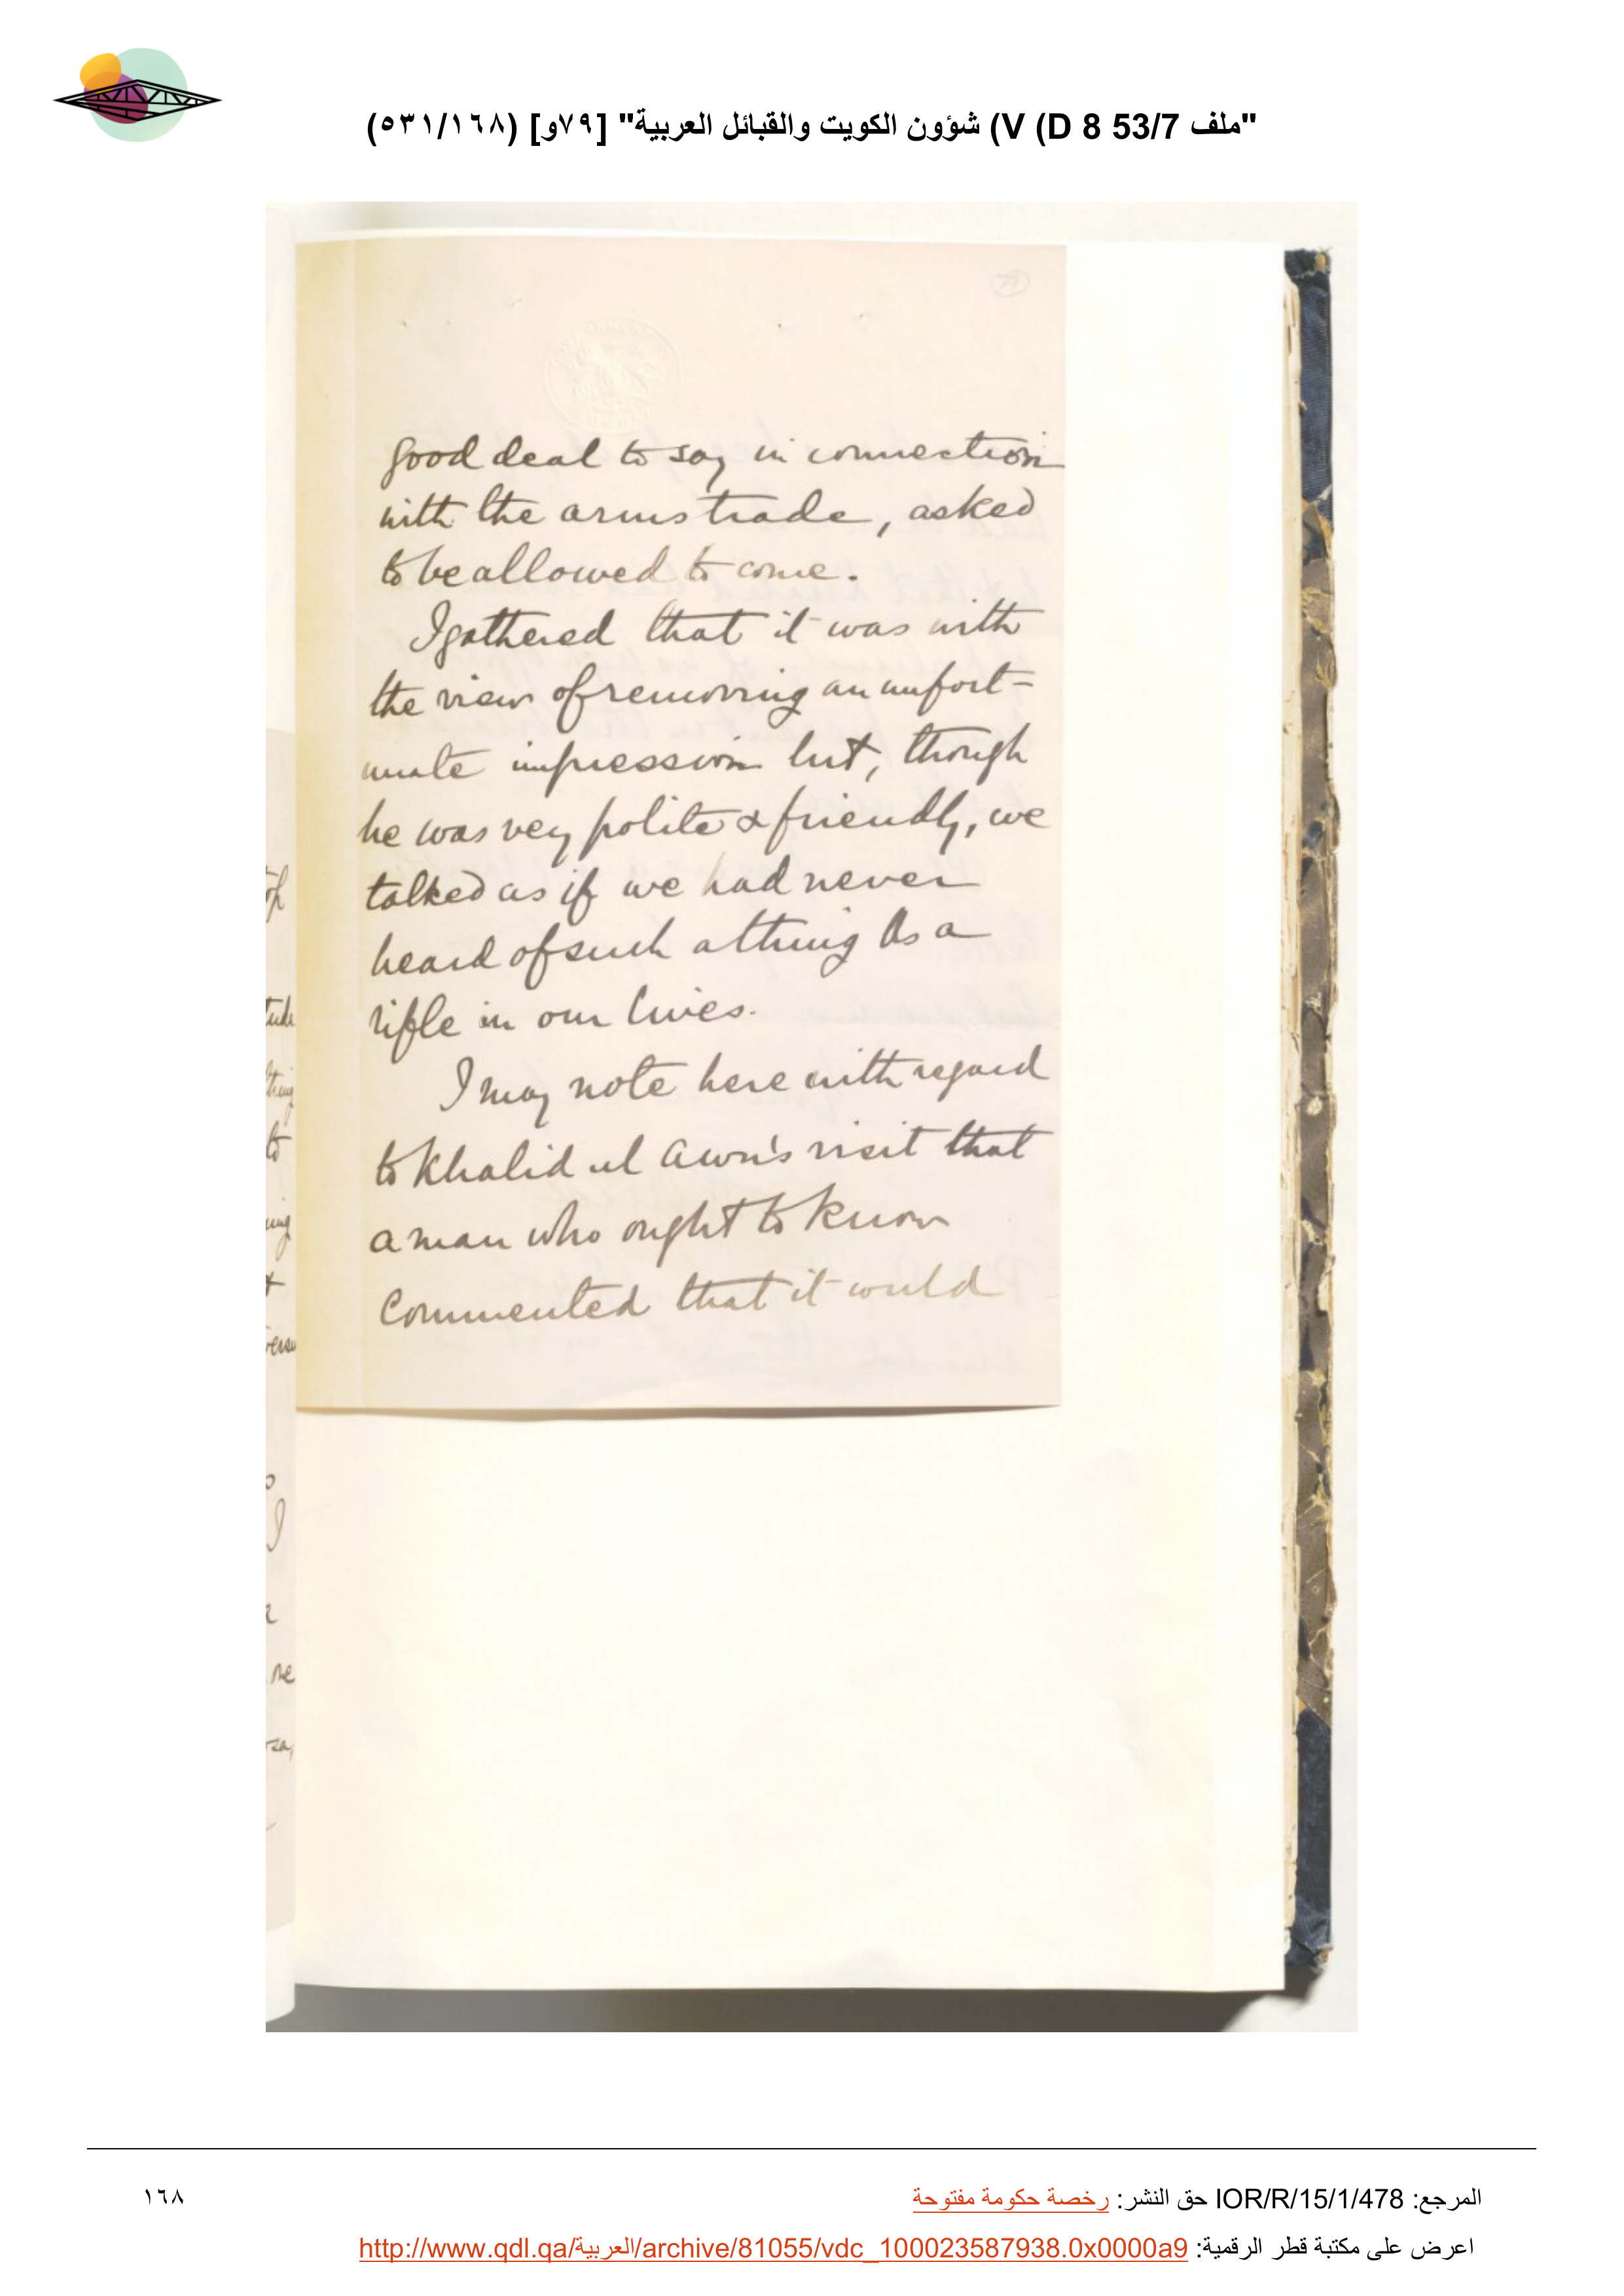 "ملف 53/7 D 8) V) شؤون الكويت والقبائل العربية" [٧٩و] (٥٣١/١٦٨)
79
good deal to say in connection
with the arms trade, asked
to be allowed to come.
I gathered that it was with
the view of removing an unfort-
unate impression but, though
he was very polite & friendly, we
talked as if we had never
heard of such a thing as a
rifle in our lives.
I may note here with regard
to Khalid ul Awn's visit that
a man who ought to know
commented that it would
المرجع: IOR/R/15/1/478 حق النشر: رخصة حكومة مفتوحة
١٦٨
اعرض على مكتبة قطر الرقمية: http://www.qdl.qa/العربية/archive/81055/vdc_100023587938.0x0000a9